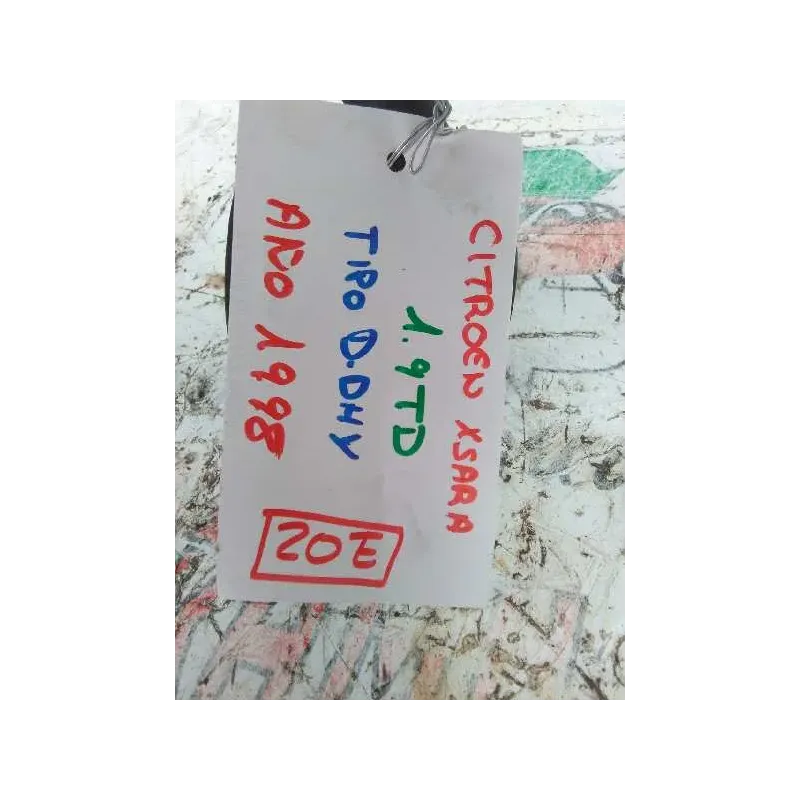 CITROEN XSARA
1.9TD
TIPO D.DHY
AÑO 1998
20E